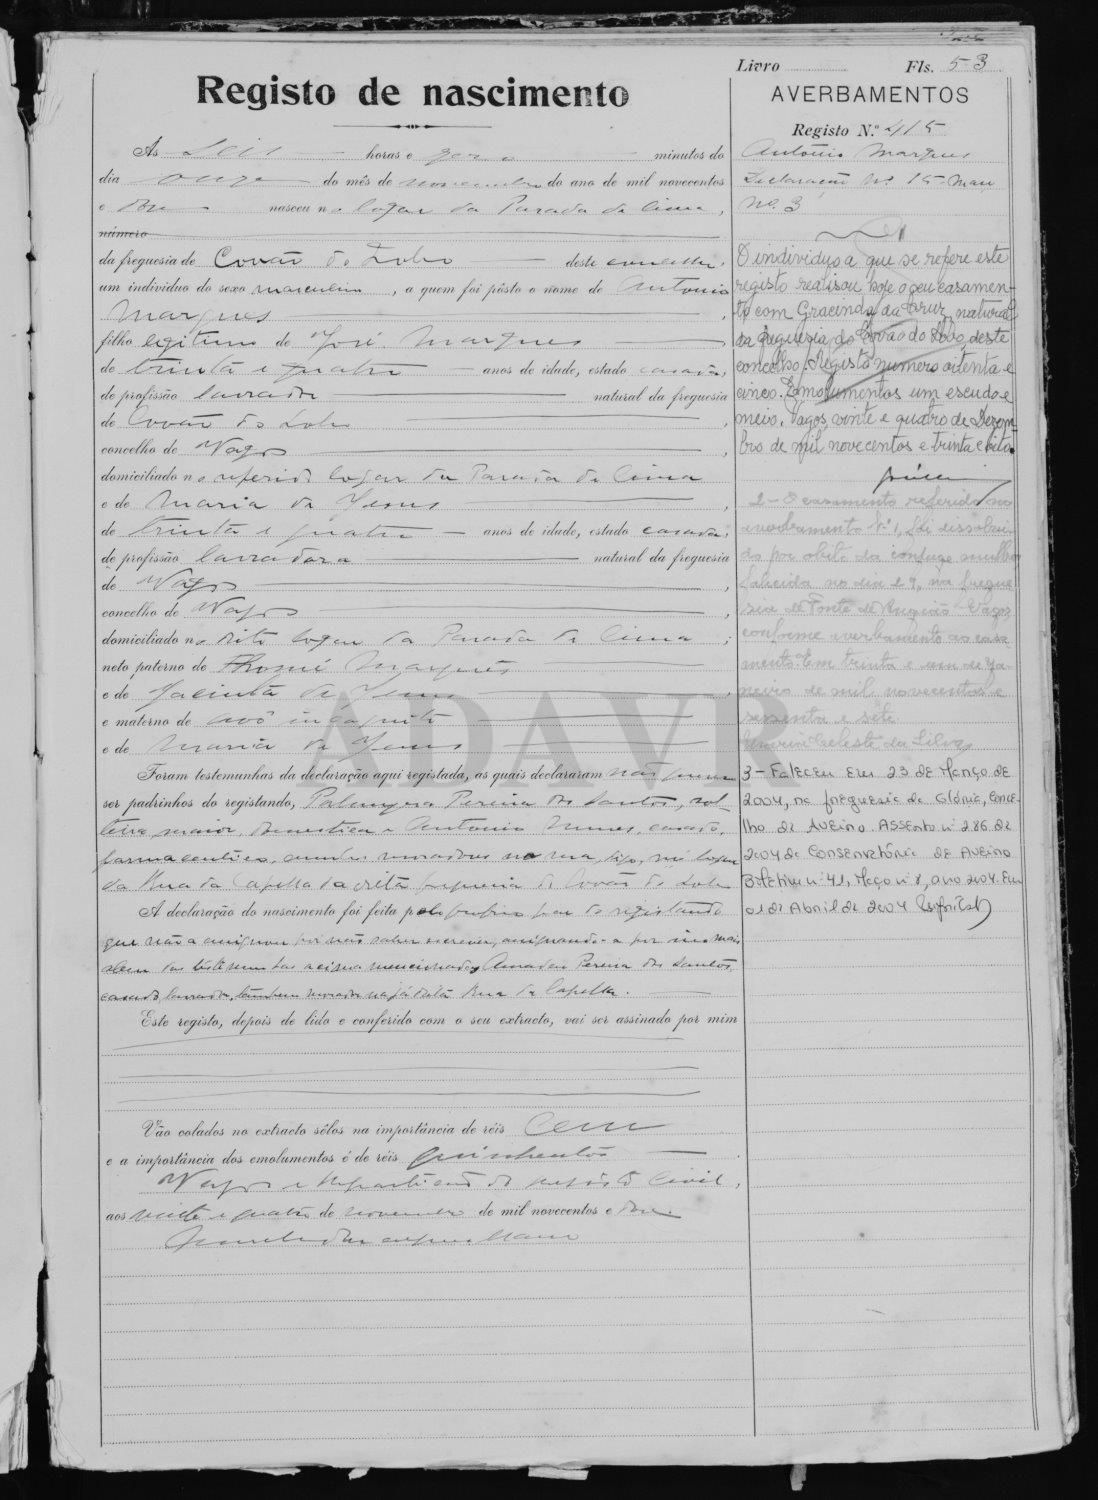 Livro Fls. 53
Registo de nascimento
AVERBAMENTOS
Registo N.º 415
António Marques
Declaração Nº. 15 Maço
Nº. 3
Às Seis horas e zero minutos do
dia onze do mês de novembro do ano de mil novecentos
e doze nasceu no logar da Parada de Cima,
número
da freguesia de Covão do Lobo deste concelho,
um individuo do sexo masculino, a quem foi pôsto o nome de Antonio
Marques,
filho legitimo de José Marques
de trinta e quatro anos de idade, estado casado,
de profissão lavrador natural da freguesia
de Covão do Lobo,
concelho de Vagos,
domiciliado no referido logar da Parada de Cima
e de Maria de Jesus,
de trinta e quatro anos de idade, estado casada,
de profissão lavradora natural da freguesia
de Vagos,
concelho de Vagos
domiciliado no dito logar da Parada de Cima;
neto paterno de Thomé Marques
e de Jacinta de Jesus,
e materno de avô incógnito
e de Maria de Jesus
Foram testemunhas da declaração aqui registada, as quais declararam não querer
ser padrinhos do registando, Pereira dos Santos, sol-
teira, maior, domestica e Antonio Nunes, casado,
farmaceutico, ambos moradores na rua, digo, no logar
da Rua da Capella da dita freguesia de Covão do Lobo
A declaração do nascimento foi feita pelo proprio pae do registando
que não a assignou por não saber escrever, assignando-a por
alem das testemunhas acima mencionadas Amadeu Pereira dos Santos,
casado, lavrador, tambem morador na já dita Rua da Capella.
Este registo, depois de lido e conferido com o seu extracto, vai ser assinado por mim
Vão colados no extracto sêlos na importância de réis Cem
e a importância dos emolumentos é de réis quinhentos
Vagos e Repartição do Registo Civil,
aos vinte e quatro de novembro de mil novecentos e doze
O individuo a que se refere este
registo realisou hoje o seu casamen-
to com Gracinda da Cruz, natural
da freguesia do Covão do Lobo, deste
concelho. Registo numero oitenta e
cinco. Emolumentos um escudo e
meio. Vagos, vinte e quatro de Dezem-
bro de mil novecentos e trinta e oito.
2 - O casamento referido no
averbamento Nº 1, foi dissolvi-
do por obito da conjuge mulher
falecida no dia 29, na fregue-
sia de Fonte de Angeão - Vagos
conforme averbamento ao casa-
mento. Em trinta e um de Ja-
neiro de mil novecentos e
sessenta e sete
Maria Celeste da Silva
3 - Faleceu em 23 de Março de
2004, na freguesia da Glória, conce-
lho de Aveiro. Assento nº 286 de
2004 da Conservatória de Aveiro
Boletim nº 41, Maço nº 8, ano 2004. Em
01 de Abril de 2004
ADAVR